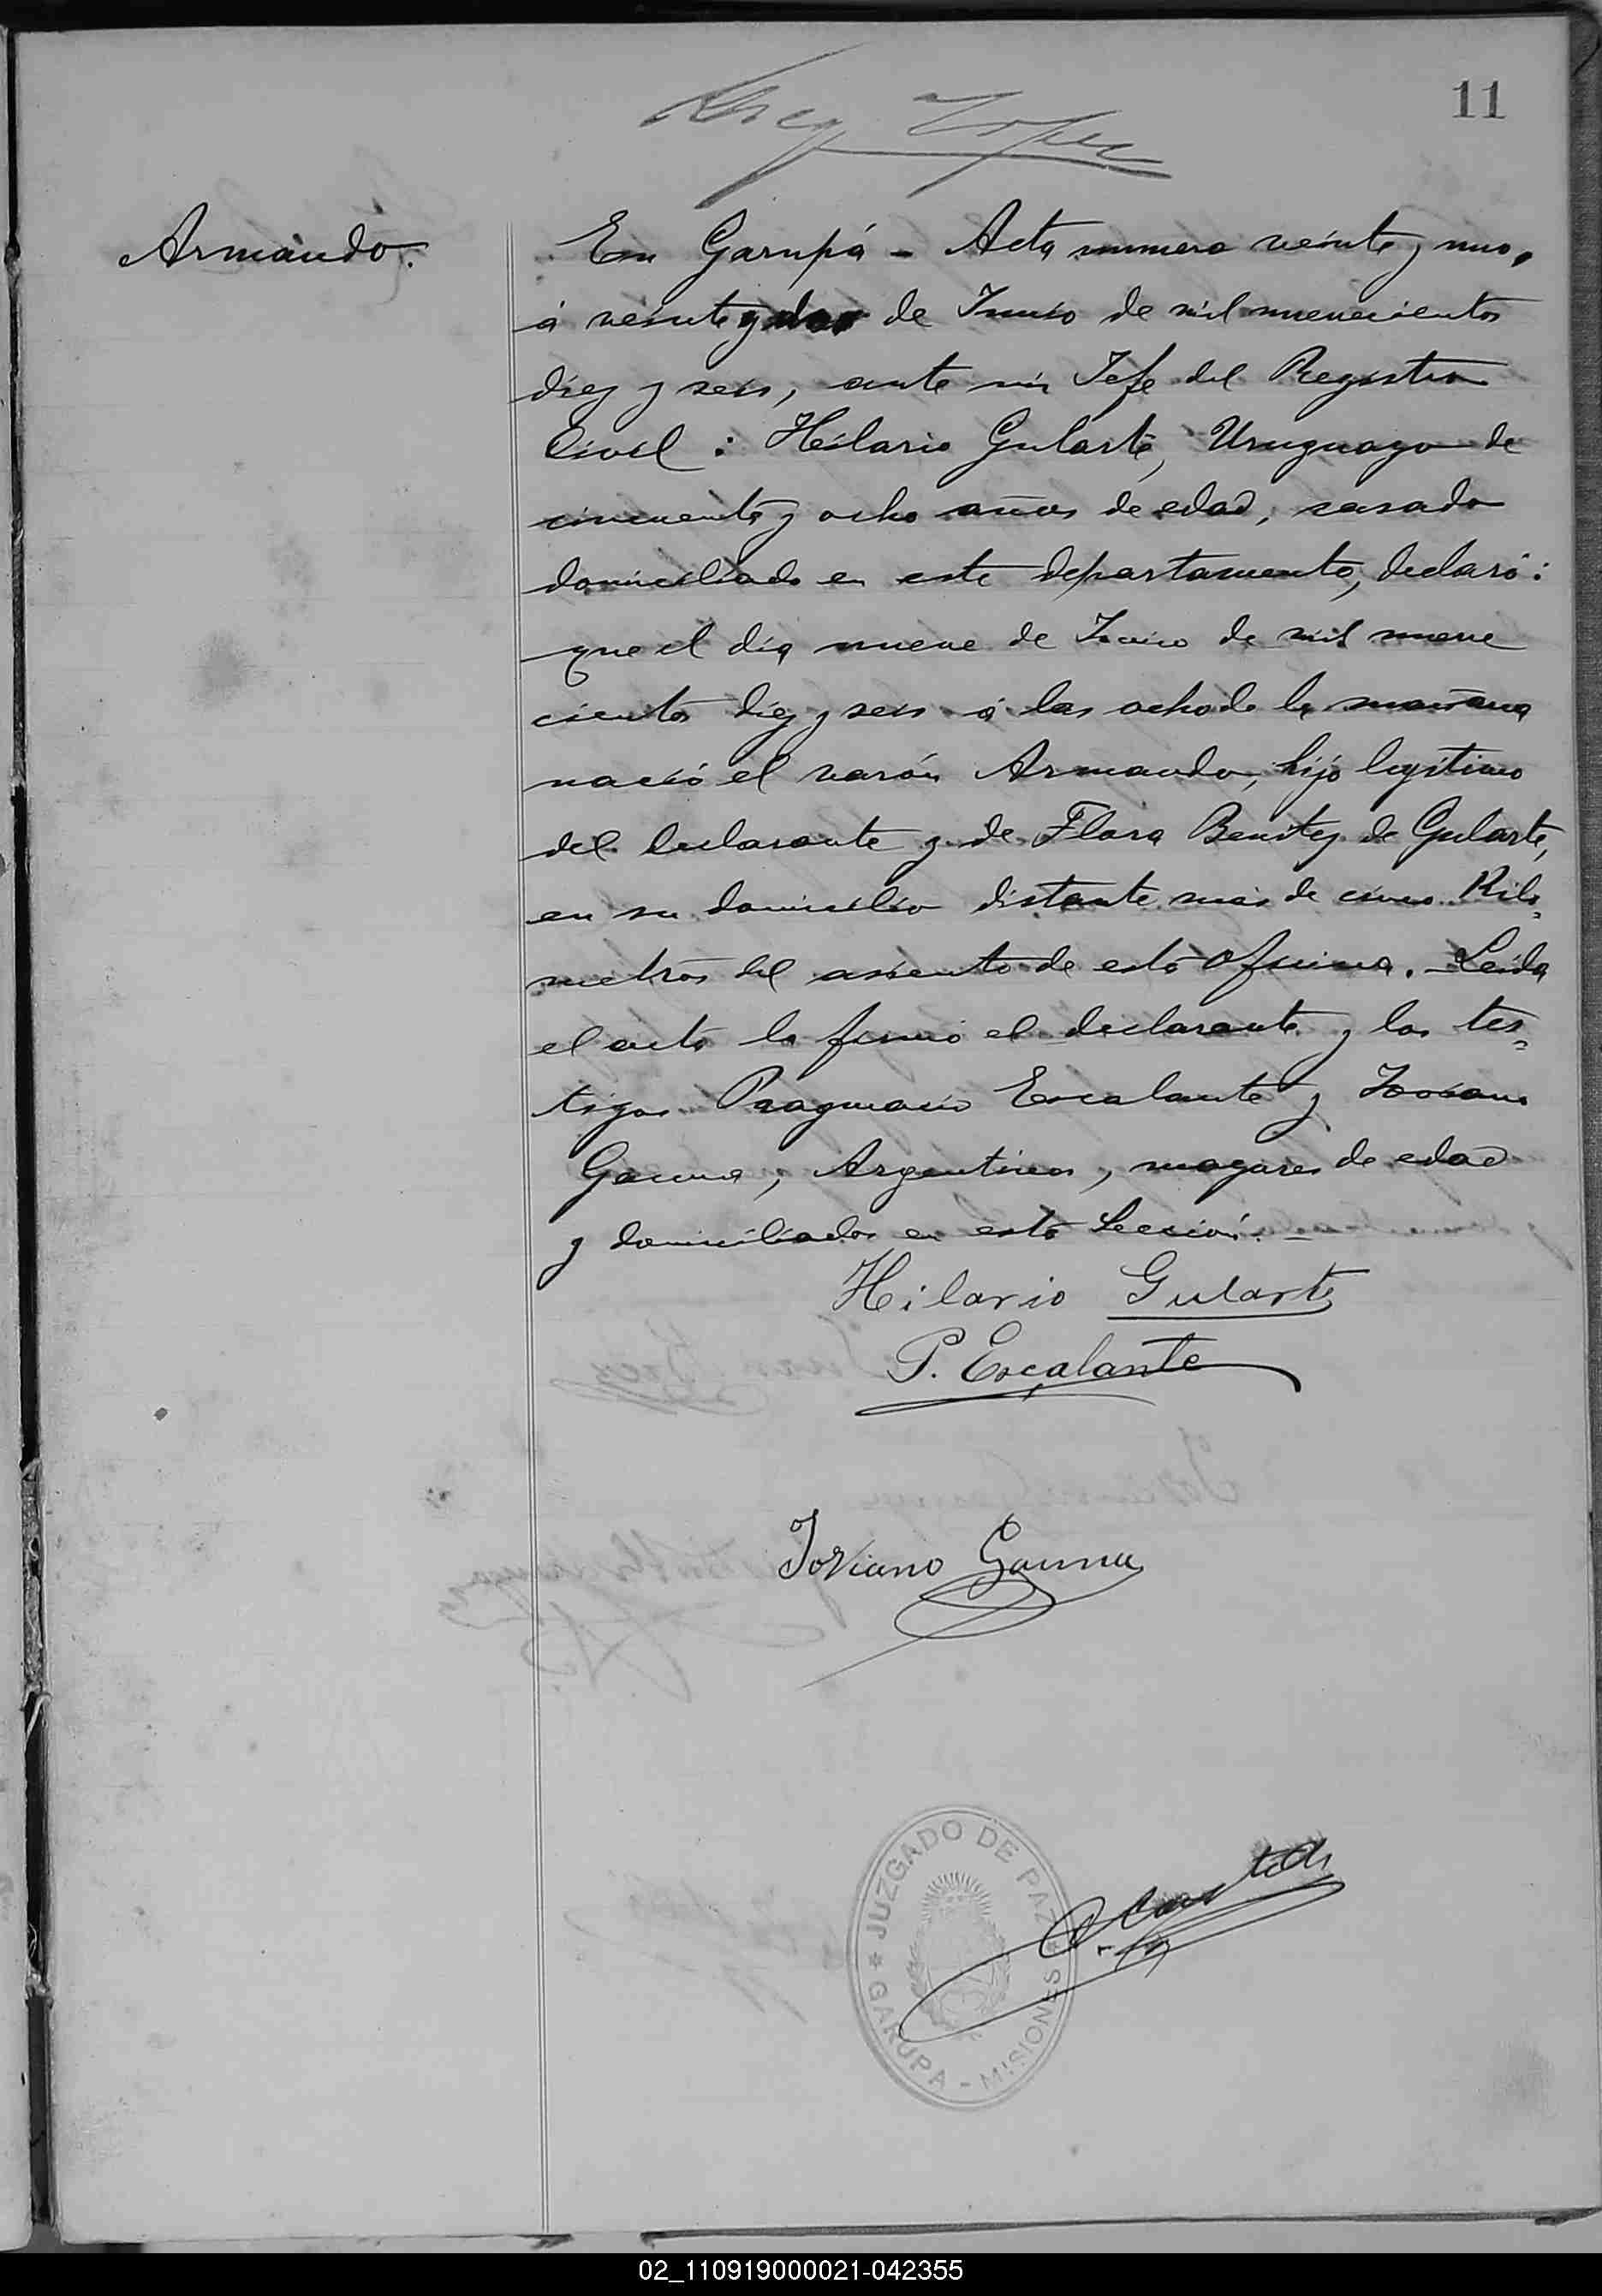 11
Lopez
Armando.
En Garupá - Acta numero veinte y uno,
á veinte y dos de Junio de mil nuevecientos
diez y seis, ante mi Jefe del Registro
Civil : Hilario Gularte, Uruguayo de
cincuenta y ocho años de edad, casado
domiciliado en este departamento, declaró :
que el dia nueve de Junio de mil nueve
cientos diez y seis á las ocho de la mañana
nació el varón Armando, hijo legitimo
del declarante y de Flora Benitez de Gularte,
en su domicilio distante más de cinco Kiló-
metros del asiento de esta Oficina. - Leida
el acta la firmó el declarante y los tes-
tigos Pragmacio Escalante y Joviano
Gauna, Argentinos, mayores de edad
y domiciliados en esta Sección. -
Hilario Gularte
P. Escalante
Joviano Gauna
JUZGADO DE PAZ
GARUPA - MISIONES
02_110919000021-042355